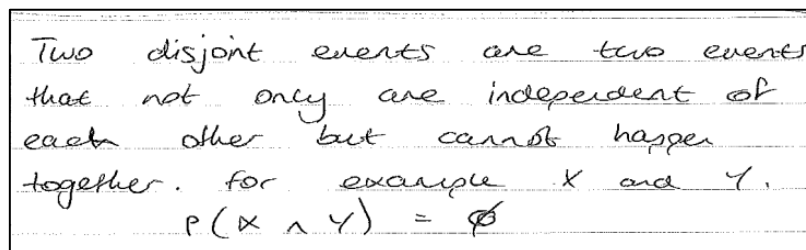 Two disjoint events are two events
that not only are independent of
each other but cannot happen
together. for example X and Y.
P(X ∩ Y) = ∅